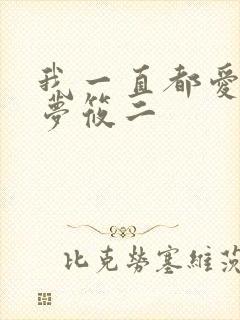 我一直都愛
夢筱二
比克勞塞維茨